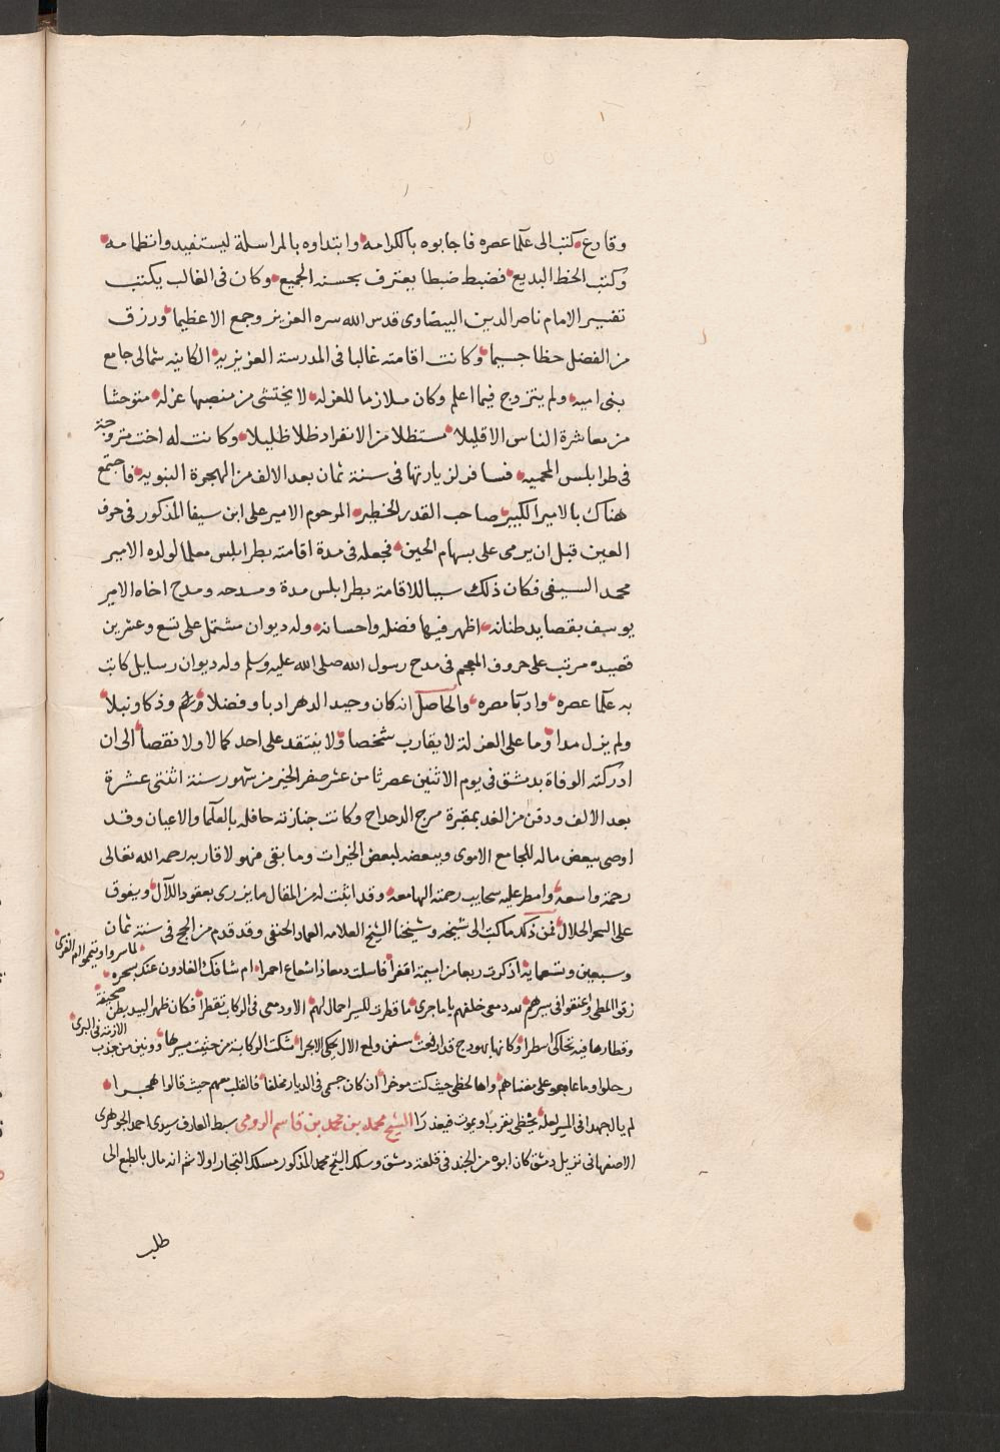 وقارع، كتب الى علما عصره فاجابوه بالكرامه، وابتداوه بالمراسلة ليستفيد وانتظامه،
وكتب الخط البديع، فضبط ضبطا يعترف بحسنه الجميع، وكان فى الغالب يكتب
تفسير الامام ناصر الدين البيضاوى قدس الله سره العزيز وجمع الاعظيما، ورزق
من الفضل حظا جسيما، وكانت اقامته غالبا فى المدرسة العزيزيه، الكاينه شمالى جامع
بنى اميه، ولم يتزوج فيما اعلم وكان ملازما للعزله، لا يختشى من منصبها عزله، متوحشا
من معاشرة الناس الا قليلا، مستظلا من الانفراد ظلا ظليلا، وكانت له اخت متزوجة
فى طرابلس المحميه، فسافر لزيارتها فى سنة ثمان بعد الالف من الهجرة النبويه، فاجتمع
هناك بالامير الكبير، صاحب القدر الخطير، المرحوم الامير على ابن سيفا المذكور فى حرف
العين قبل ان يرمى على بسهام الحين، فجعله فى مدة اقامته بطرابلس معلما لولده الامير
محمد السيفى فكان ذلك سببا للاقامة بطرابلس مدة ومدحه ومدح اخاه الامير
يوسف بقصايد طنانه، اظهر فيها فضله واحسانه، وله ديوان مشتمل على تسع وعشرين
قصيده مرتب على حروف المعجم فى مدح رسول الله صلى الله عليه وسلم وله ديوان رسايل كاتب
به علما عصره، وادبا مصره، والحاصل انه كان وحيد الدهر ادبا وفضلا، وذكا ونبلا،
ولم يزل مداوما على العزلة لا يقارب شخصا، ولا ينتقد على احد كمالا ولا نقصا، الى ان
ادركته الوفاة بدمشق فى يوم الاثنين عصر ثامن عشر صفر الخير من شهور سنة اثنتى عشرة
بعد الالف ودفن من الغد بمقبرة مرج الدحداح وكانت جنازته حافله بالعلما والاعيان وقد
اوصى ببعض ماله للجامع الاموى وببعضه لبعض الخيرات وما بقى فهو لاقاربه رحمه الله تعالى
رحمة واسعة، وامطر عليه سحايب رحمته الهامعه، وقد اثبت له من المقال ما يزرى بعقود اللآل، ويفوق
على السحر الحلال، فمن ذلك ما كتب الى شيخه وشيخنا الشيخ العلامه العماد الحنفى وقد قدم من الحج فى سنة ثمان
وسبعين وتسعماية، اذكرت ربعا من اسيمة اقفرا، فاسلت دمعا ذا شعاع احمرا، ام شاقك الغادون عنك بسحره، لما سروا وتيمموا ام القرى
زموا المطى واعنقوا فى سيرهم، لله دمعى خلفهم يا ما جرى، ما قطرت للسير احمال لهم، الا ودمعى فى الركاب تقطرا، فكان ظهر البيد بطن صحيفة،
وقطارها فيه تحاكى اسطرا، وكانها بهودج قد رفعت، سفن ولمع الال يحكى الابحرا،
رحلوا وما عاجوا على مغناهم، واها لحظى حيث كنت موخرا، ان كان جسمى فى الديار مخلفا، فالقلب معهم حيث قالوا هجرا،
لم يال جهدا فى المسير لعله، يحظى بقرب او يموت فيعذرا، الشيخ محمد بن محمد بن قاسم الرومى سبط العارف سيدى احمد الجوهرى
الاصفهانى نزيل دمشق كان ابوه من الجند فى قلعة دمشق وسلك الشيخ محمد المذكور مسلك التجار اولا ثم انه مال بالطبع الى
طلب